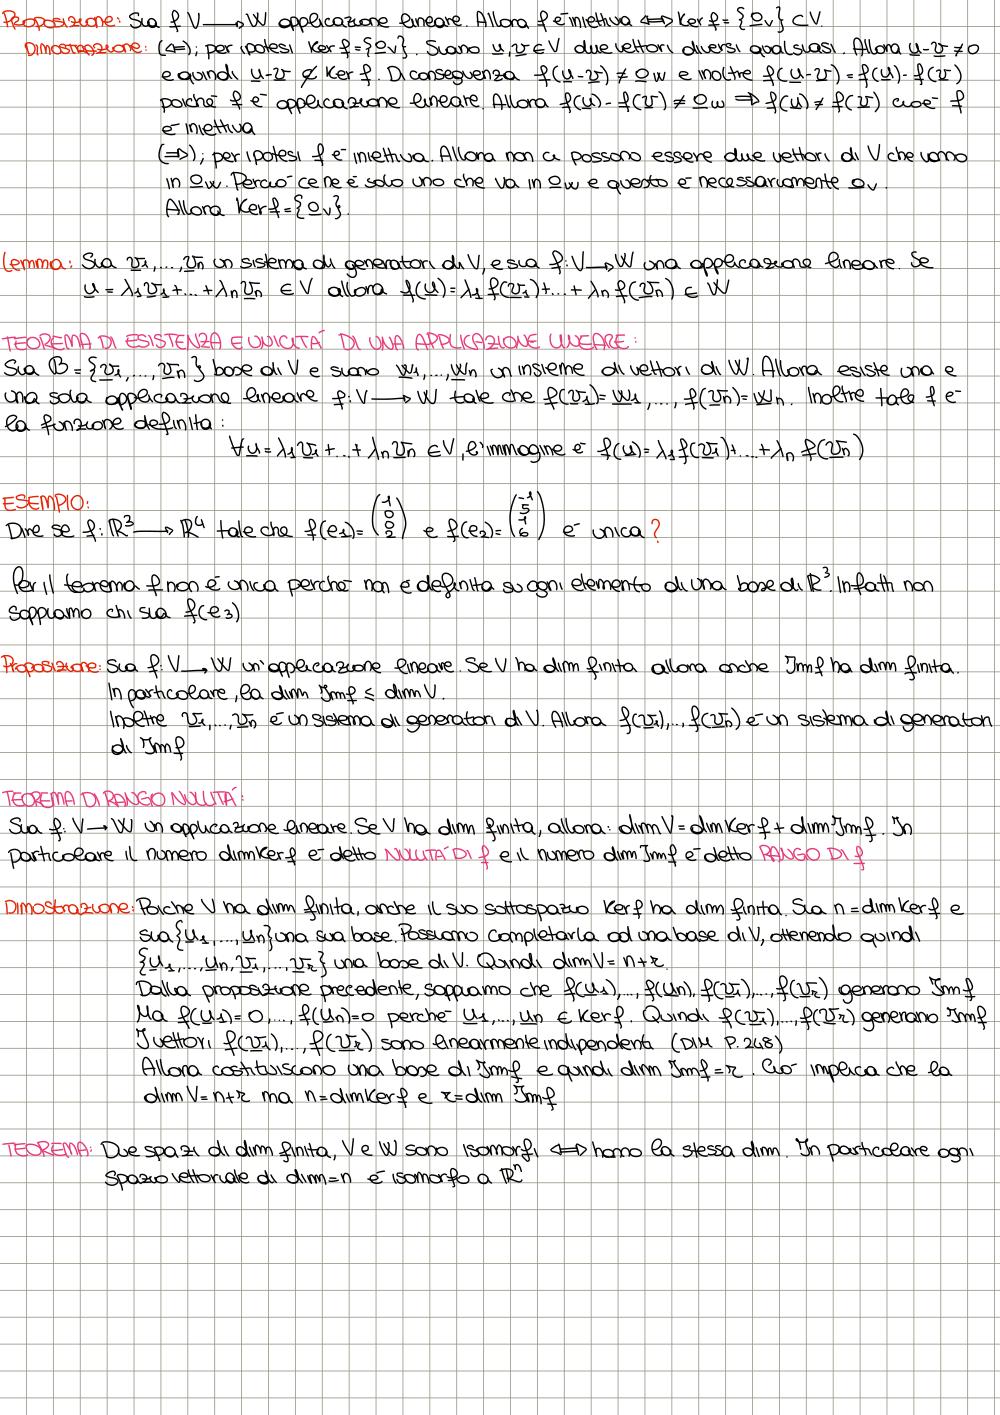 Proposizione: Sia f V → W applicazione lineare. Allora f è iniettiva ⟺ Ker f = {0v} ⊂ V.
Dimostrazione: (⇐); per ipotesi Ker f = {0v}. Siano u, v ∈ V due vettori diversi qualsiasi. Allora u-v ≠ 0
e quindi u-v ∉ Ker f. Di conseguenza f(u-v) ≠ 0w e inoltre f(u-v) = f(u) - f(v)
poiché f è applicazione lineare. Allora f(u) - f(v) ≠ 0w ⇒ f(u) ≠ f(v) cioè f
è iniettiva
(⇒); per ipotesi f è iniettiva. Allora non ci possono essere due vettori di V che vanno
in 0w. Perciò ce ne è solo uno che va in 0w e questo è necessariamente 0v.
Allora Ker f = {0v}.
Lemma: Sia v1, ..., vn un sistema di generatori di V, e sia f: V → W una applicazione lineare. Se
u = λ1v1 + ... + λnvn ∈ V allora f(u) = λ1f(v1) + ... + λnf(vn) ∈ W
TEOREMA DI ESISTENZA E UNICITÀ DI UNA APPLICAZIONE LINEARE:
Sia B = {v1, ..., vn} base di V e siano w1, ..., wn un insieme di vettori di W. Allora esiste una e
una sola applicazione lineare f: V → W tale che f(v1) = w1, ..., f(vn) = wn. Inoltre tale f è
la funzione definita:
∀u = λ1v1 + ... + λnvn ∈ V, l'immagine è f(u) = λ1f(v1) + ... + λn f(vn)
ESEMPIO:
Dire se f: ℝ³ → ℝ⁴ tale che f(e1) = (1 0 0 2) e f(e2) = (-1 5 1 6) è unica?
Per il teorema f non è unica perché non è definita su ogni elemento di una base di ℝ³. Infatti non
sappiamo chi sia f(e3)
Proposizione: Sia f: V → W un'applicazione lineare. Se V ha dim finita allora anche Imf ha dim finita.
In particolare, la dim Imf ≤ dim V.
Inoltre v1, ..., vn è un sistema di generatori di V. Allora f(v1), ..., f(vn) è un sistema di generatori
di Imf
TEOREMA DI RANGO NULLITÀ:
Sia f: V → W un applicazione lineare. Se V ha dim finita, allora: dim V = dim Ker f + dim Imf. In
particolare il numero dim Ker f è detto NULLITÀ DI f e il numero dim Imf è detto RANGO DI f
Dimostrazione: Poiché V ha dim finita, anche il suo sottospazio Ker f ha dim finita. Sia n = dim Ker f e
sia {u1, ..., un} una sua base. Possiamo completarla ad una base di V, ottenendo quindi
{u1, ..., un, v1, ..., vr} una base di V. Quindi dim V = n+r.
Dalla proposizione precedente, sappiamo che f(u1), ..., f(un), f(v1), ..., f(vr) generano Imf
Ma f(u1) = 0, ..., f(un) = 0 perché u1, ..., un ∈ Ker f. Quindi f(v1), ..., f(vr) generano Imf
I vettori f(v1), ..., f(vr) sono linearmente indipendenti (DIM P. 248)
Allora costituiscono una base di Imf e quindi dim Imf = r. Ciò implica che la
dim V = n+r ma n = dim Ker f e r = dim Imf
TEOREMA: Due spazi di dim finita, V e W sono isomorfi ⟺ hanno la stessa dim. In particolare ogni
spazio vettoriale di dim = n è isomorfo a ℝⁿ